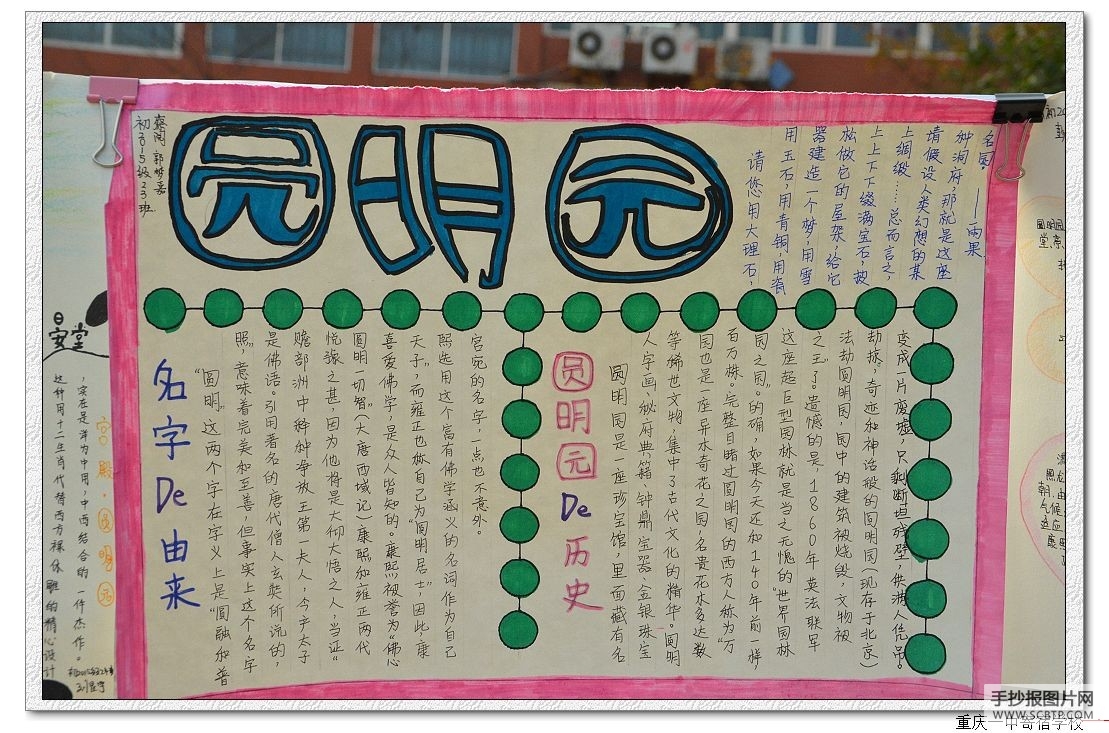 圆明园
初2015级23班
请您用大理石，
用玉石，用青铜，用瓷
器建造一个梦，用雪
松做它的屋架，给它
上上下下缀满宝石，披
上绸缎……总而言之，
请假设人类幻想的某
种洞府，那就是这座
名园。——雨果
名字De由来
“圆明”这两个字在字义上是“圆融和普
照”，意味着完美和至善，但事实上这个名字
是佛语。引用著名的唐代僧人玄奘所说的，
赡部洲中种种净放王第一夫人，今产太子
悦豫之甚，因为他将是大彻大悟之人，当证“
圆明一切智”《大唐西域记》康熙和雍正两代
喜爱佛学，是众人皆知的。康熙被誉为“佛心
天子”，而雍正也称自己为“圆明居士”，因此，康
熙选用这个富有佛学涵义的名词作为自己
宫宛的名字，一点也不意外。
圆明园De历史
圆明园是一座珍宝馆，里面藏有名
人字画、秘府典籍、钟鼎宝器、金银珠宝
等稀世文物，集中了古代文化的精华。圆明
园也是一座异木奇花之园，名贵花木多达数
百万株。完整目睹过圆明园的西方人称为“万
园之园。”的确，如果今天还和140年前一样
这座超巨型园林就是当之无愧的“世界园林
之王”了。遗憾的是，1860年英法联军
法劫圆明园，园中的建筑被烧毁，文物被
劫掠，奇迹和神话般的圆明园（现存于北京）
变成一片废墟，只剩断垣残壁，供游人凭吊。
晏堂
宫殿·圆明园
，实在是洋为中用，中西结合的一件杰作。
这种用十二生肖代替西方裸体雕的精心设计
手抄报图片网
WWW.SCBTP.COM
重庆一中寄宿学校